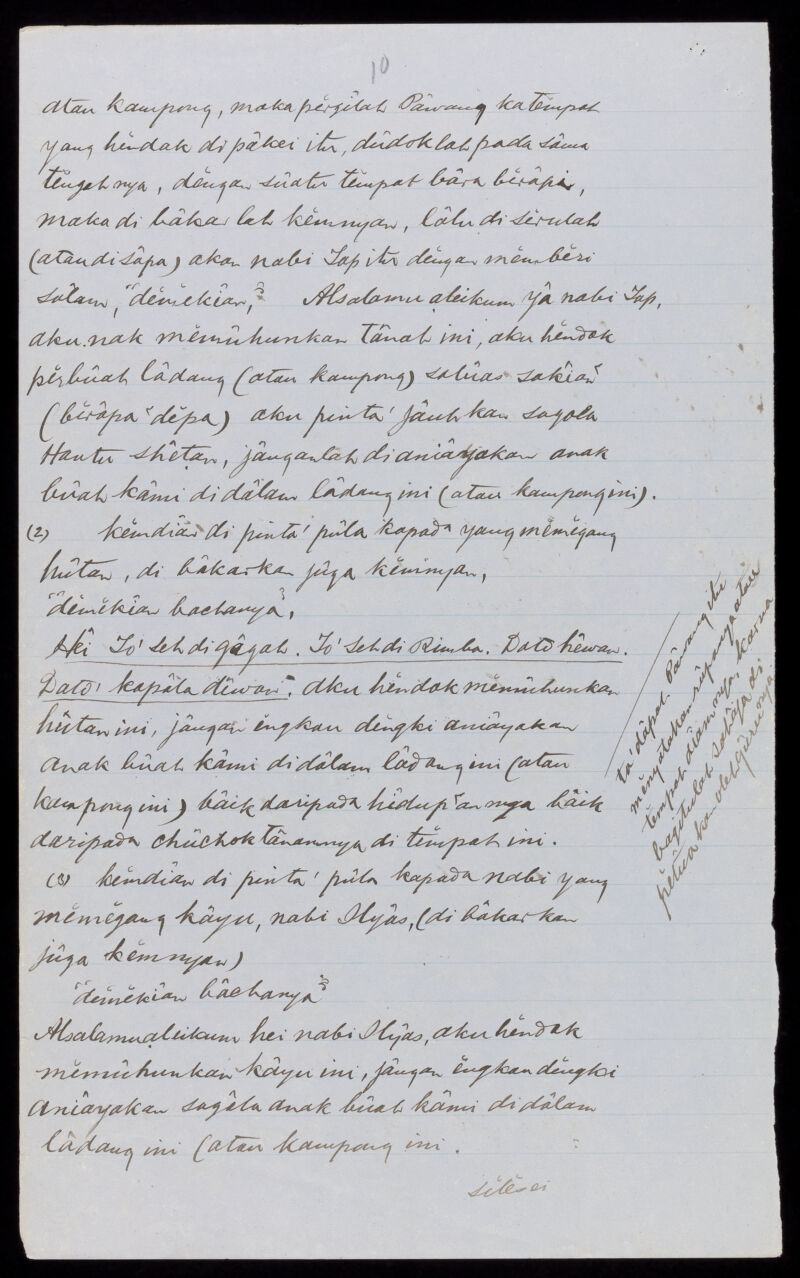 10
atau kampong, maka pĕrgilah Pâwang katĕmpat
yang hĕndak di pâkei itu, dûdoklah pada sâma
tĕngah nya, dĕngan sûatu tĕmpat bâra bĕrâpi,
maka di bâkar lah kĕmnyan, lâlu di sĕrulah
(atau di sâpa) akan nabi Tap itu dĕngan mĕmbĕri
sâlam, "dĕmĕkîan," Alsalamu aleikum yâ nabi Tap,
aku nak mĕmûhunkan tânah ini, aku hĕndak
pĕrbûat lâdang (atau kampong) salûas sakîan
(bĕrâpa² dĕpa) aku pinta' jâuhkan sagala
Hantu shêtan, jânganlah di aniâyakan anak
bûah kâmi di dâlam lâdang ini (atau kampong ini).
(2) kĕmdîan di pinta' pûla kapada yang mĕmĕgang
hûtan, di bâkarkan jûga kĕminyan,
"dĕmĕkîan bachanyâ",
Hêi To' Seh di gâgah. To' Seh di Rimba. Dato hêwan.
Dato' kapâla dêwan, aku hĕndak mĕmûhunkan
hûtan ini, jângan ĕngkau dĕngki aniâyakan
anak bûah kâmi di dâlam lâdang ini (atau
kampong ini) bâik daripada hîdup²an nya bâik
daripada chûchok tânamnya di tĕmpat ini.
(3) kĕmdîan di pinta' pûla kapada nabi yang
mĕmĕgang kâyu, nabi Ilyâs, (di bâkarkan
jûga kĕmnyan)
"dĕmĕkîan bâchanyâ"
Alsalamu aleikum hei nabi Ilyâs, aku hĕndak
mĕmûhunkan kâyu ini, jângan ĕngkau dĕngki
aniâyakan sagâla anak bûah kâmi di dâlam
lâdang ini (atau kampong ini.
sĕlĕsei
ta' dâpat Pâwang itu
mĕnyatakan rûpanya atau
tĕmpat dîamnya, karna
bagitulah sahâja di
pĕtûakan oleh gûrunya.